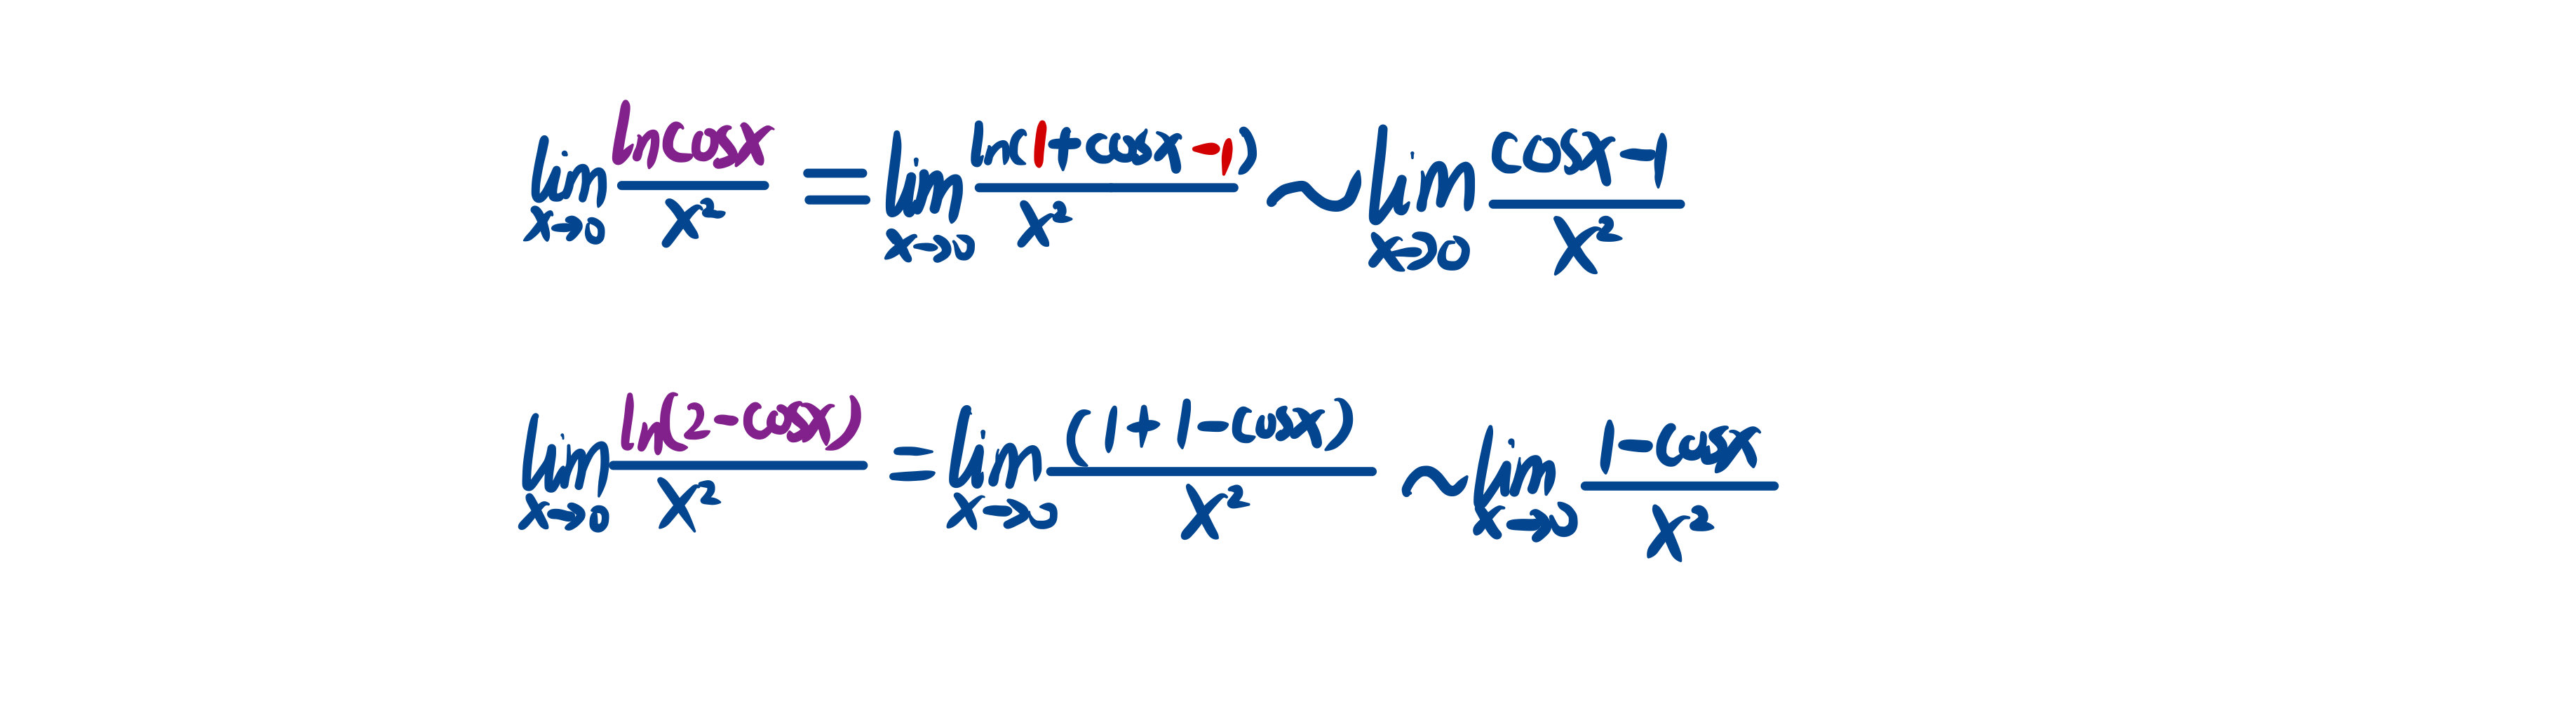 lim x→0 lncosx / x² = lim x→0 ln(1+cosx-1) / x² ~ lim x→0 cosx-1 / x²
lim x→0 ln(2-cosx) / x² = lim x→0 (1+1-cosx) / x² ~ lim x→0 1-cosx / x²